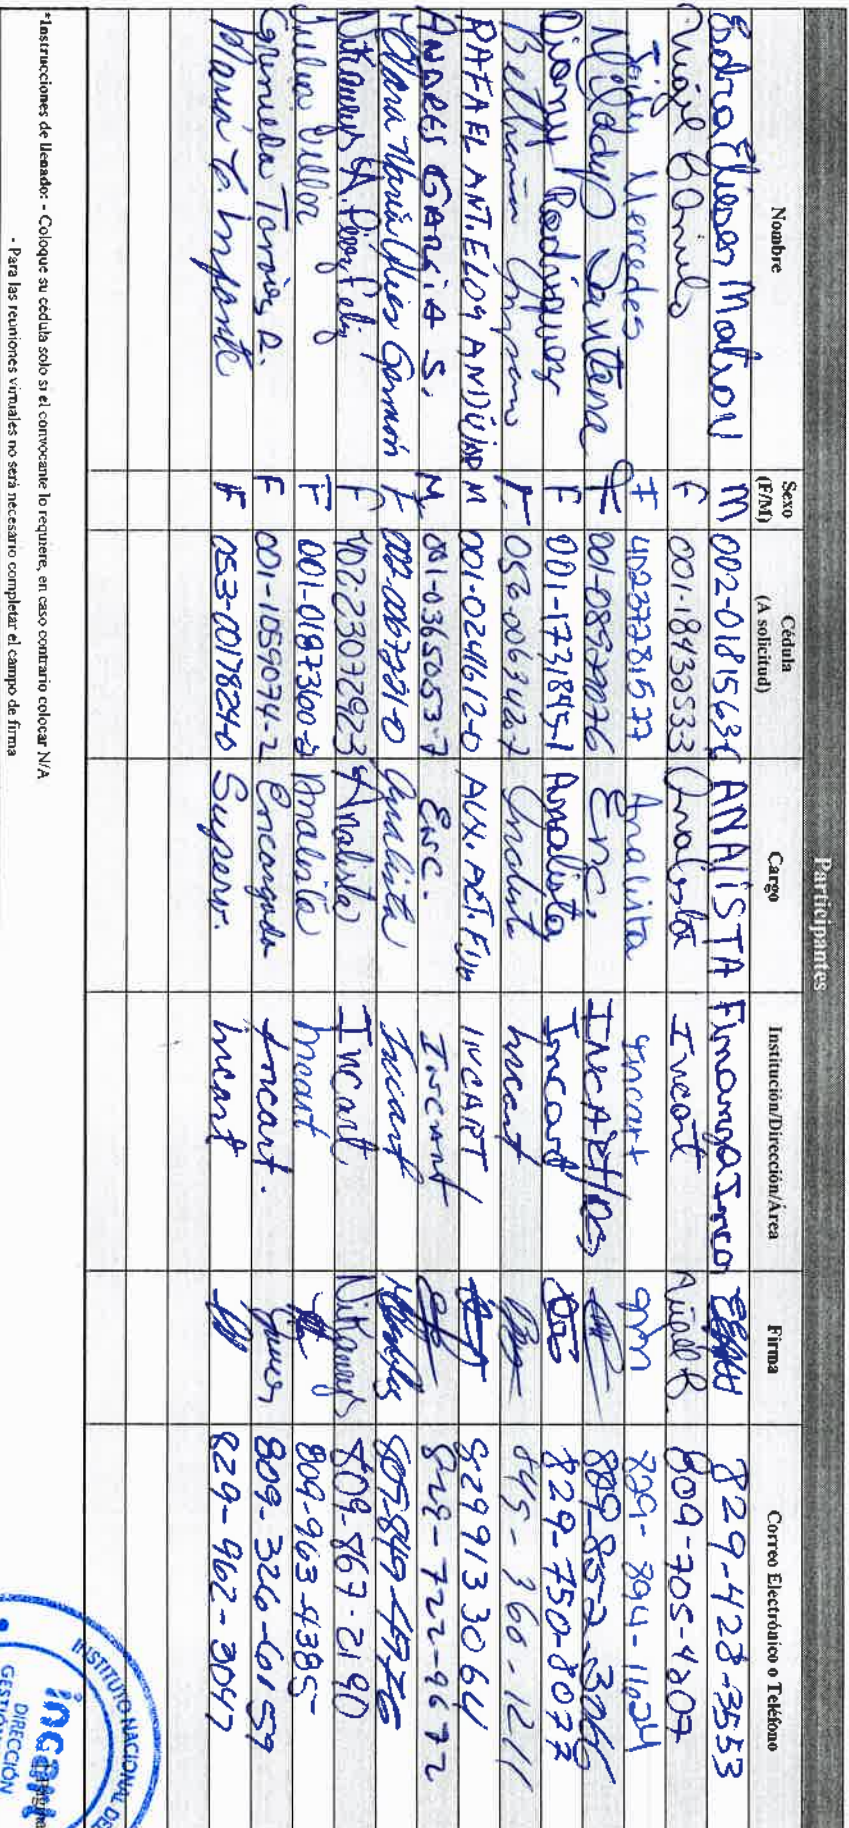 Participantes
Nombre Sexo (F/M) Cédula (A solicitud) Cargo Institución/Dirección/Área Firma Correo Electrónico o Teléfono
M 002-0181563-6 ANALISTA Finanza Incar 829-428-3553
F 001-1843053-3 Analista Incart 809-705-4207
Mercedes F 40237281577 Analista Incart gm 809-894-1124
Milady Santana F 001-08929076 Enc. INCART/OS 809-852-3066
Diany Rodriguez F 001-1731845-1 Analista Incart 829-750-8077
Bethania F 056-0063426-7 Analista Incart 849-360-1211
RAFAEL ANT. ELOY ANDÚJAR M M 001-0241612-0 AUX. ACT. Fijo INCART 8299133064
ANDRES GARCIA S. M 001-0365053-7 Enc. INCART 829-722-9672
Maria Garzón F Analista Incart
Nitaneys A. Pérez Feliz F 402-23072923 Analista Incart Nitaneys 809-867-2190
Julia F 001-0187360-2 Analista Incart 809-963-4385
Torres R. F 001-1059074-2 Encargada Incart. 809-326-6159
Maria Infante F 053-0017824-0 Superv. Incart 829-962-3047
*Instrucciones de llenado: - Coloque su cédula solo si el convocante lo requiere, en caso contrario colocar N/A
- Para las reuniones virtuales no será necesario completar el campo de firma
INSTITUTO NACIONAL DE
incart
DIRECCIÓN